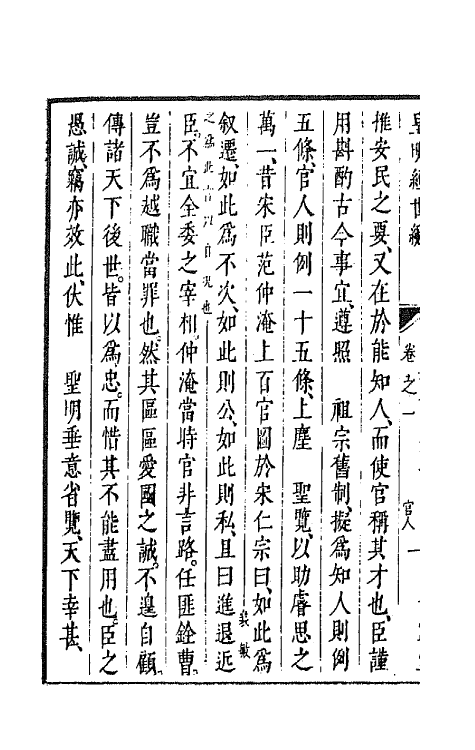 皇明經世編 卷之一 官人 一
惟安民之要、又在於能知人、而使官稱其才也、臣謹
用斟酌古今事宜、遵照 祖宗舊制、擬爲知人則例
五條、官人則例一十五條、上塵 聖覽、以助睿思之
萬一、昔宋臣范仲淹上百官圖於宋仁宗曰、如此爲
叙遷、如此爲不次、如此則公、如此則私、且曰進退近
之爲此言以自况也
臣、不宜全委之宰相、仲淹當時官非言路、任匪銓曹、
豈不爲越職當罪也、然其區區愛國之誠、不遑自顧、
傳諸天下後世、皆以爲忠、而惜其不能盡用也、臣之
愚誠、竊亦效此、伏惟 聖明垂意省覽、天下幸甚、